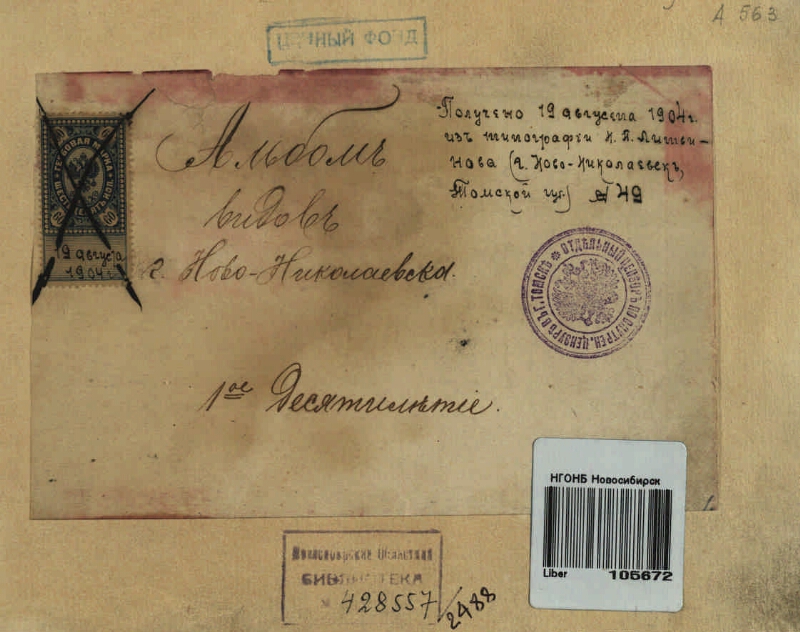 А 563
ЦЕННЫЙ ФОНД
ГЕРБОВАЯ МАРКА
60 60
19 августа
1904 г.
Альбомъ
видовъ
г. Ново-Николаевска.
1ое Десятилѣтіе.
Получено 19 августа 1904 г.
изъ типографіи Н. П. Литви-
нова (г. Ново-Николаевскъ,
Томской губ.) № 49
ОТДѢЛЬНЫЙ ЦЕНЗОРЪ ПО ВНУТРЕН. ЦЕНЗУРѢ ВЪ Г. ТОМСКѢ
НГОНБ Новосибирск
Liber 105672
Областная
БИБЛИОТЕКА
№ 428557/2488